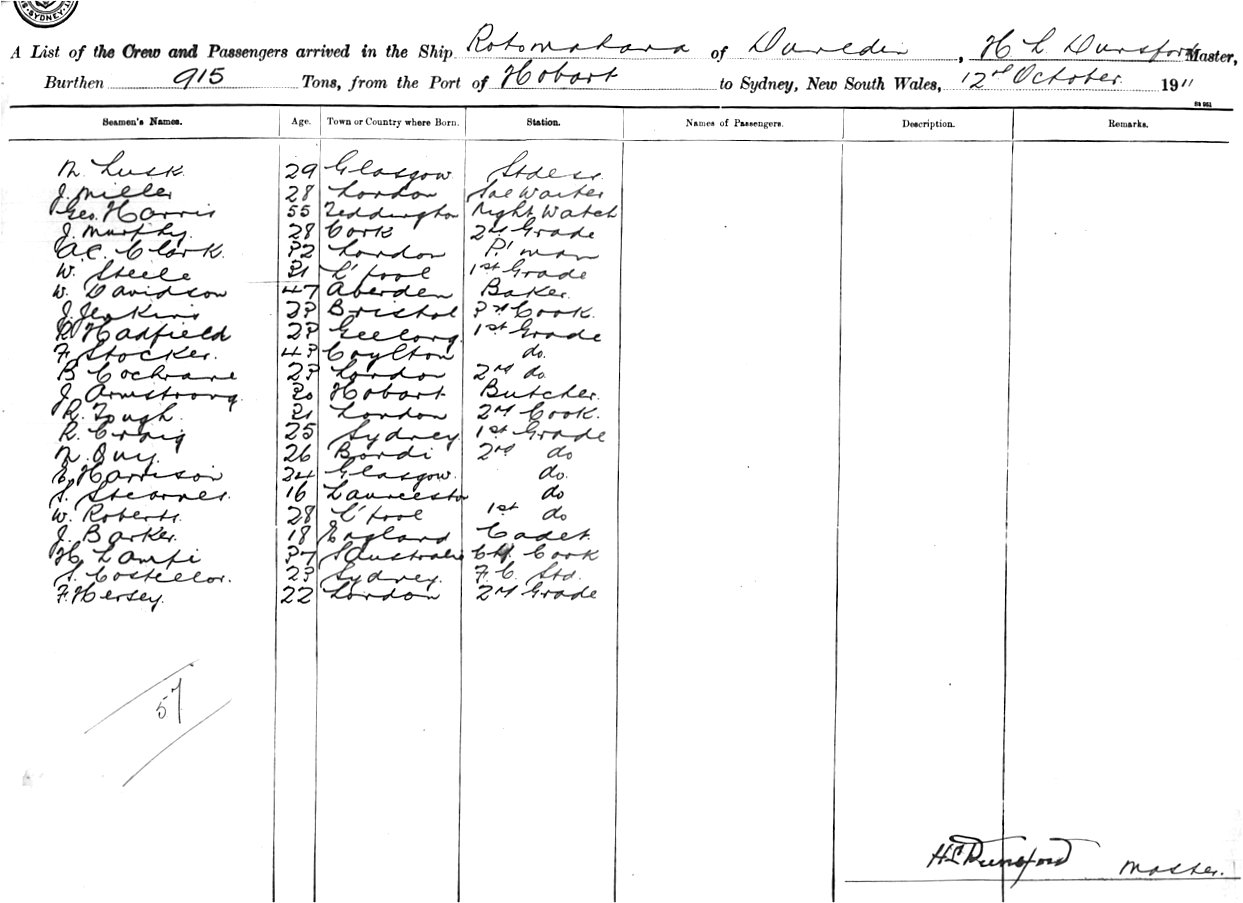 SYDNEY
A List of the Crew and Passengers arrived in the Ship Rotomahana of Dunedin, H L Dunsford Master,
Burthen 915 Tons, from the Port of Hobart to Sydney, New South Wales, 12nd October 1911
Seamen's Names. Age. Town or Country where Born. Station. Names of Passengers. Description. Remarks.
N. Lusk 29 Glasgow Stdess
J. Miller 28 London Sal Waiter
Geo. Harris 55 Teddington Night Watch
J. Murphy. 28 Cork 2nd Grade
A C. Clark. 32 London P. man
W. Steele 21 L'pool 1st Grade
W. Davidson 47 Aberden Baker.
J. Jenkins 23 Bristol 3rd Cook.
R Hadfield 23 Geelong 1st Grade
F. Stocker. 43 Coylton do.
B Cochrane 23 London 2nd do
J. Armstrong. 20 Hobart Butcher.
R. Tough. 21 London 2nd Cook.
R. Craig 25 Sydney 1st Grade
N. Guy. 26 Bondi 2nd do
E. Harrison 24 Glasgow. do.
S. Stearnes. 16 Launceston do
W. Roberts. 28 L'pool 1st do
J. Barker. 18 England Cadet.
H Lampi 37 S Australia Chf. Cook
S. Costellor. 23 Sydney. F. C. Std.
F. Hersey. 22 London 2nd Grade
57
H L Dunsford Master.